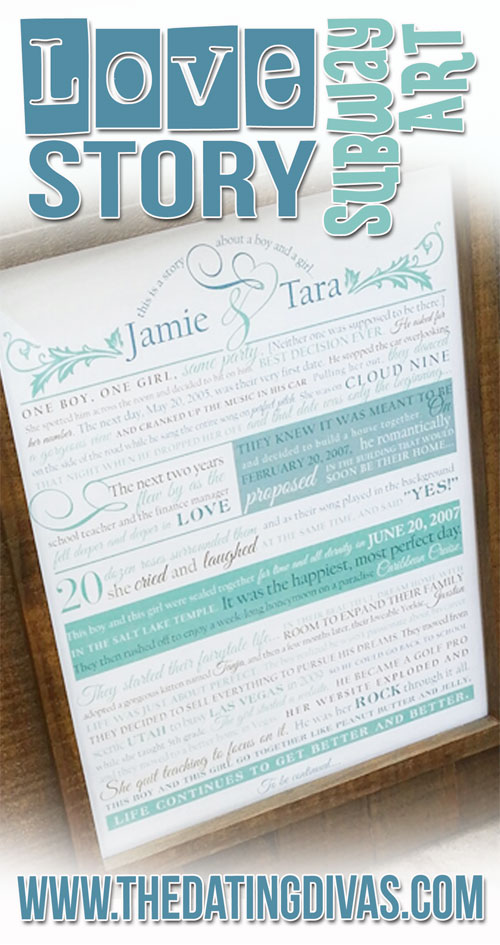 Love
STORY
SUBWAY
ART
this is a story about a boy and a girl...
Jamie & Tara
ONE BOY. ONE GIRL. some party. [Neither one was supposed to be there.]
She spotted him across the room and decided to hit on him. BEST DECISION EVER. He asked for
her number. The next day, May 20, 2005, was their very first date. He stopped the car overlooking
a gorgeous view AND CRANKED UP THE MUSIC IN HIS CAR. Pulling her out, they danced
on the side of the road while he sang the entire song on perfect pitch. She was on CLOUD NINE
THAT NIGHT WHEN HE DROPPED HER OFF and that date was only the beginning...
The next two years
flew by as the
school teacher and the finance manager
fell deeper and deeper in LOVE
THEY KNEW IT WAS MEANT TO BE
and decided to build a house together. On
FEBRUARY 20, 2007, he romantically
proposed IN THE BUILDING THAT WOULD
SOON BE THEIR HOME...
20 dozen roses surrounded them and as their song played in the background
she cried and laughed AT THE SAME TIME, AND SAID "YES!"
This boy and this girl were sealed together for time and all eternity on JUNE 20, 2007
IN THE SALT LAKE TEMPLE. It was the happiest, most perfect day.
They then rushed off to enjoy a week-long honeymoon on a paradise Caribbean Cruise.
They started their fairytale life... IN THEIR BEAUTIFUL DREAM HOME WITH
ROOM TO EXPAND THEIR FAMILY
adopted a gorgeous kitten named Tanja, and then a few months later, their loveable Yorkie,
LIFE WAS JUST ABOUT PERFECT.
THEY DECIDED TO SELL EVERYTHING TO PURSUE HIS DREAMS. They moved from
scenic UTAH to busy LAS VEGAS in 2009 SO HE COULD GO BACK TO SCHOOL
while she taught 5th grade. The girl started a website. HE BECAME A GOLF PRO
and they moved HER WEBSITE EXPLODED AND
She quit teaching to focus on it. He was her ROCK through it all.
THIS BOY AND THIS GIRL GO TOGETHER LIKE PEANUT BUTTER AND JELLY.
LIFE CONTINUES TO GET BETTER AND BETTER.
To be continued...
WWW.THEDATINGDIVAS.COM